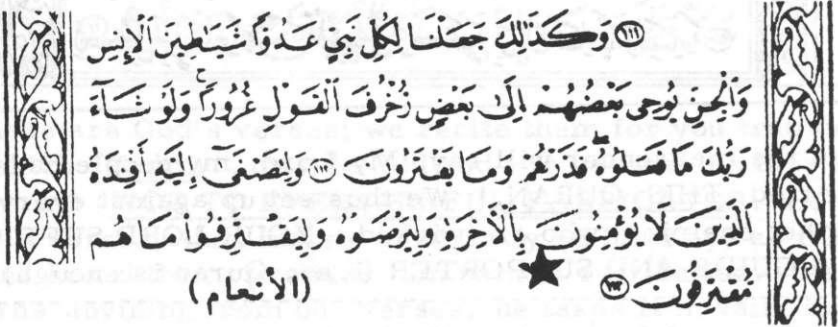 ﴿١١١﴾ وَكَذَٰلِكَ جَعَلْنَا لِكُلِّ نَبِيٍّ عَدُوًّا شَيَٰطِينَ ٱلْإِنسِ
وَٱلْجِنِّ يُوحِى بَعْضُهُمْ إِلَىٰ بَعْضٍ زُخْرُفَ ٱلْقَوْلِ غُرُورًا ۚ وَلَوْ شَآءَ
رَبُّكَ مَا فَعَلُوهُ ۖ فَذَرْهُمْ وَمَا يَفْتَرُونَ ﴿١١٢﴾ وَلِتَصْغَىٰٓ إِلَيْهِ أَفْـِٔدَةُ
ٱلَّذِينَ لَا يُؤْمِنُونَ بِٱلْءَاخِرَةِ وَلِيَرْضَوْهُ وَلِيَقْتَرِفُوا۟ مَا هُم
مُّقْتَرِفُونَ ﴿١١٣﴾ (الانعام)